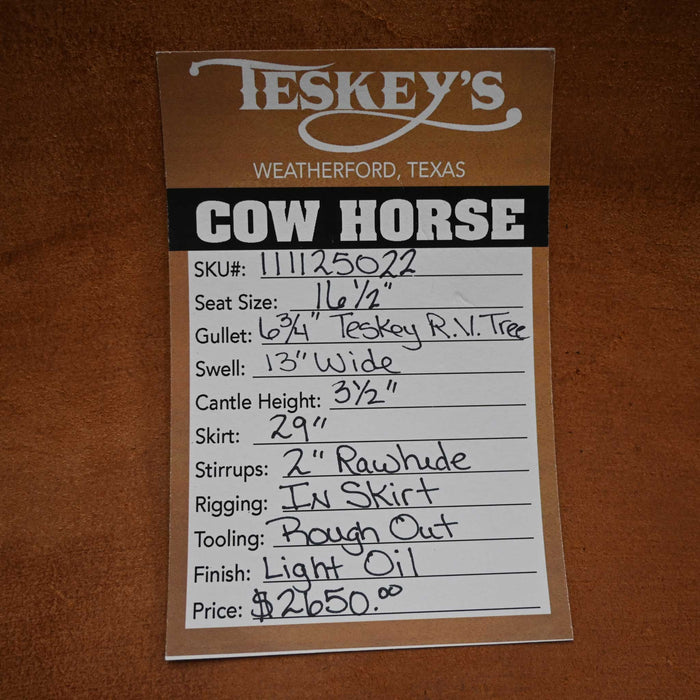 TESKEY'S
WEATHERFORD, TEXAS
COW HORSE
SKU#: 111125022
Seat Size: 16 1/2"
Gullet: 6 3/4" Teskey R.V. Tree
Swell: 13" Wide
Cantle Height: 3 1/2"
Skirt: 29"
Stirrups: 2" Rawhide
Rigging: In Skirt
Tooling: Rough Out
Finish: Light Oil
Price: $2650.00